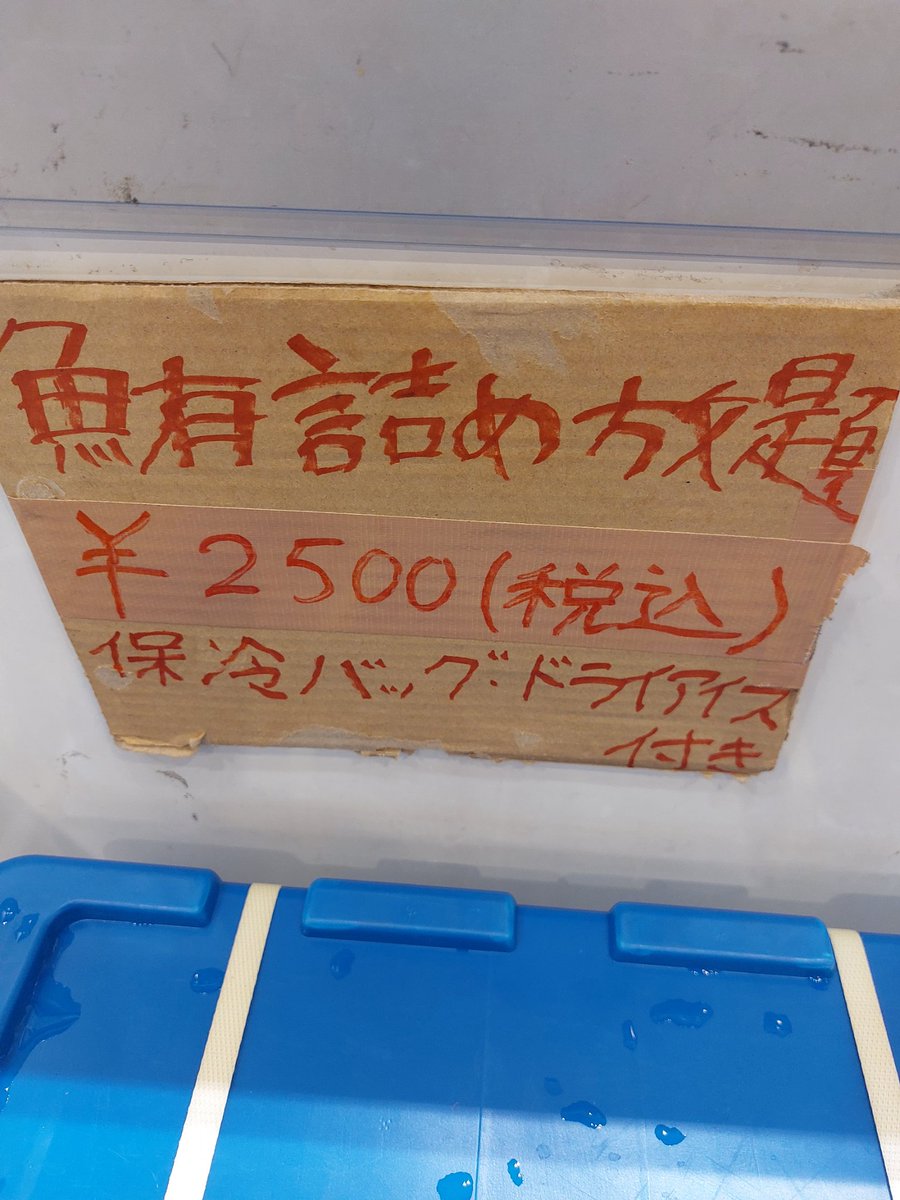 鮪詰め放題
¥2500(税込)
保冷バッグ・ドライアイス
付き